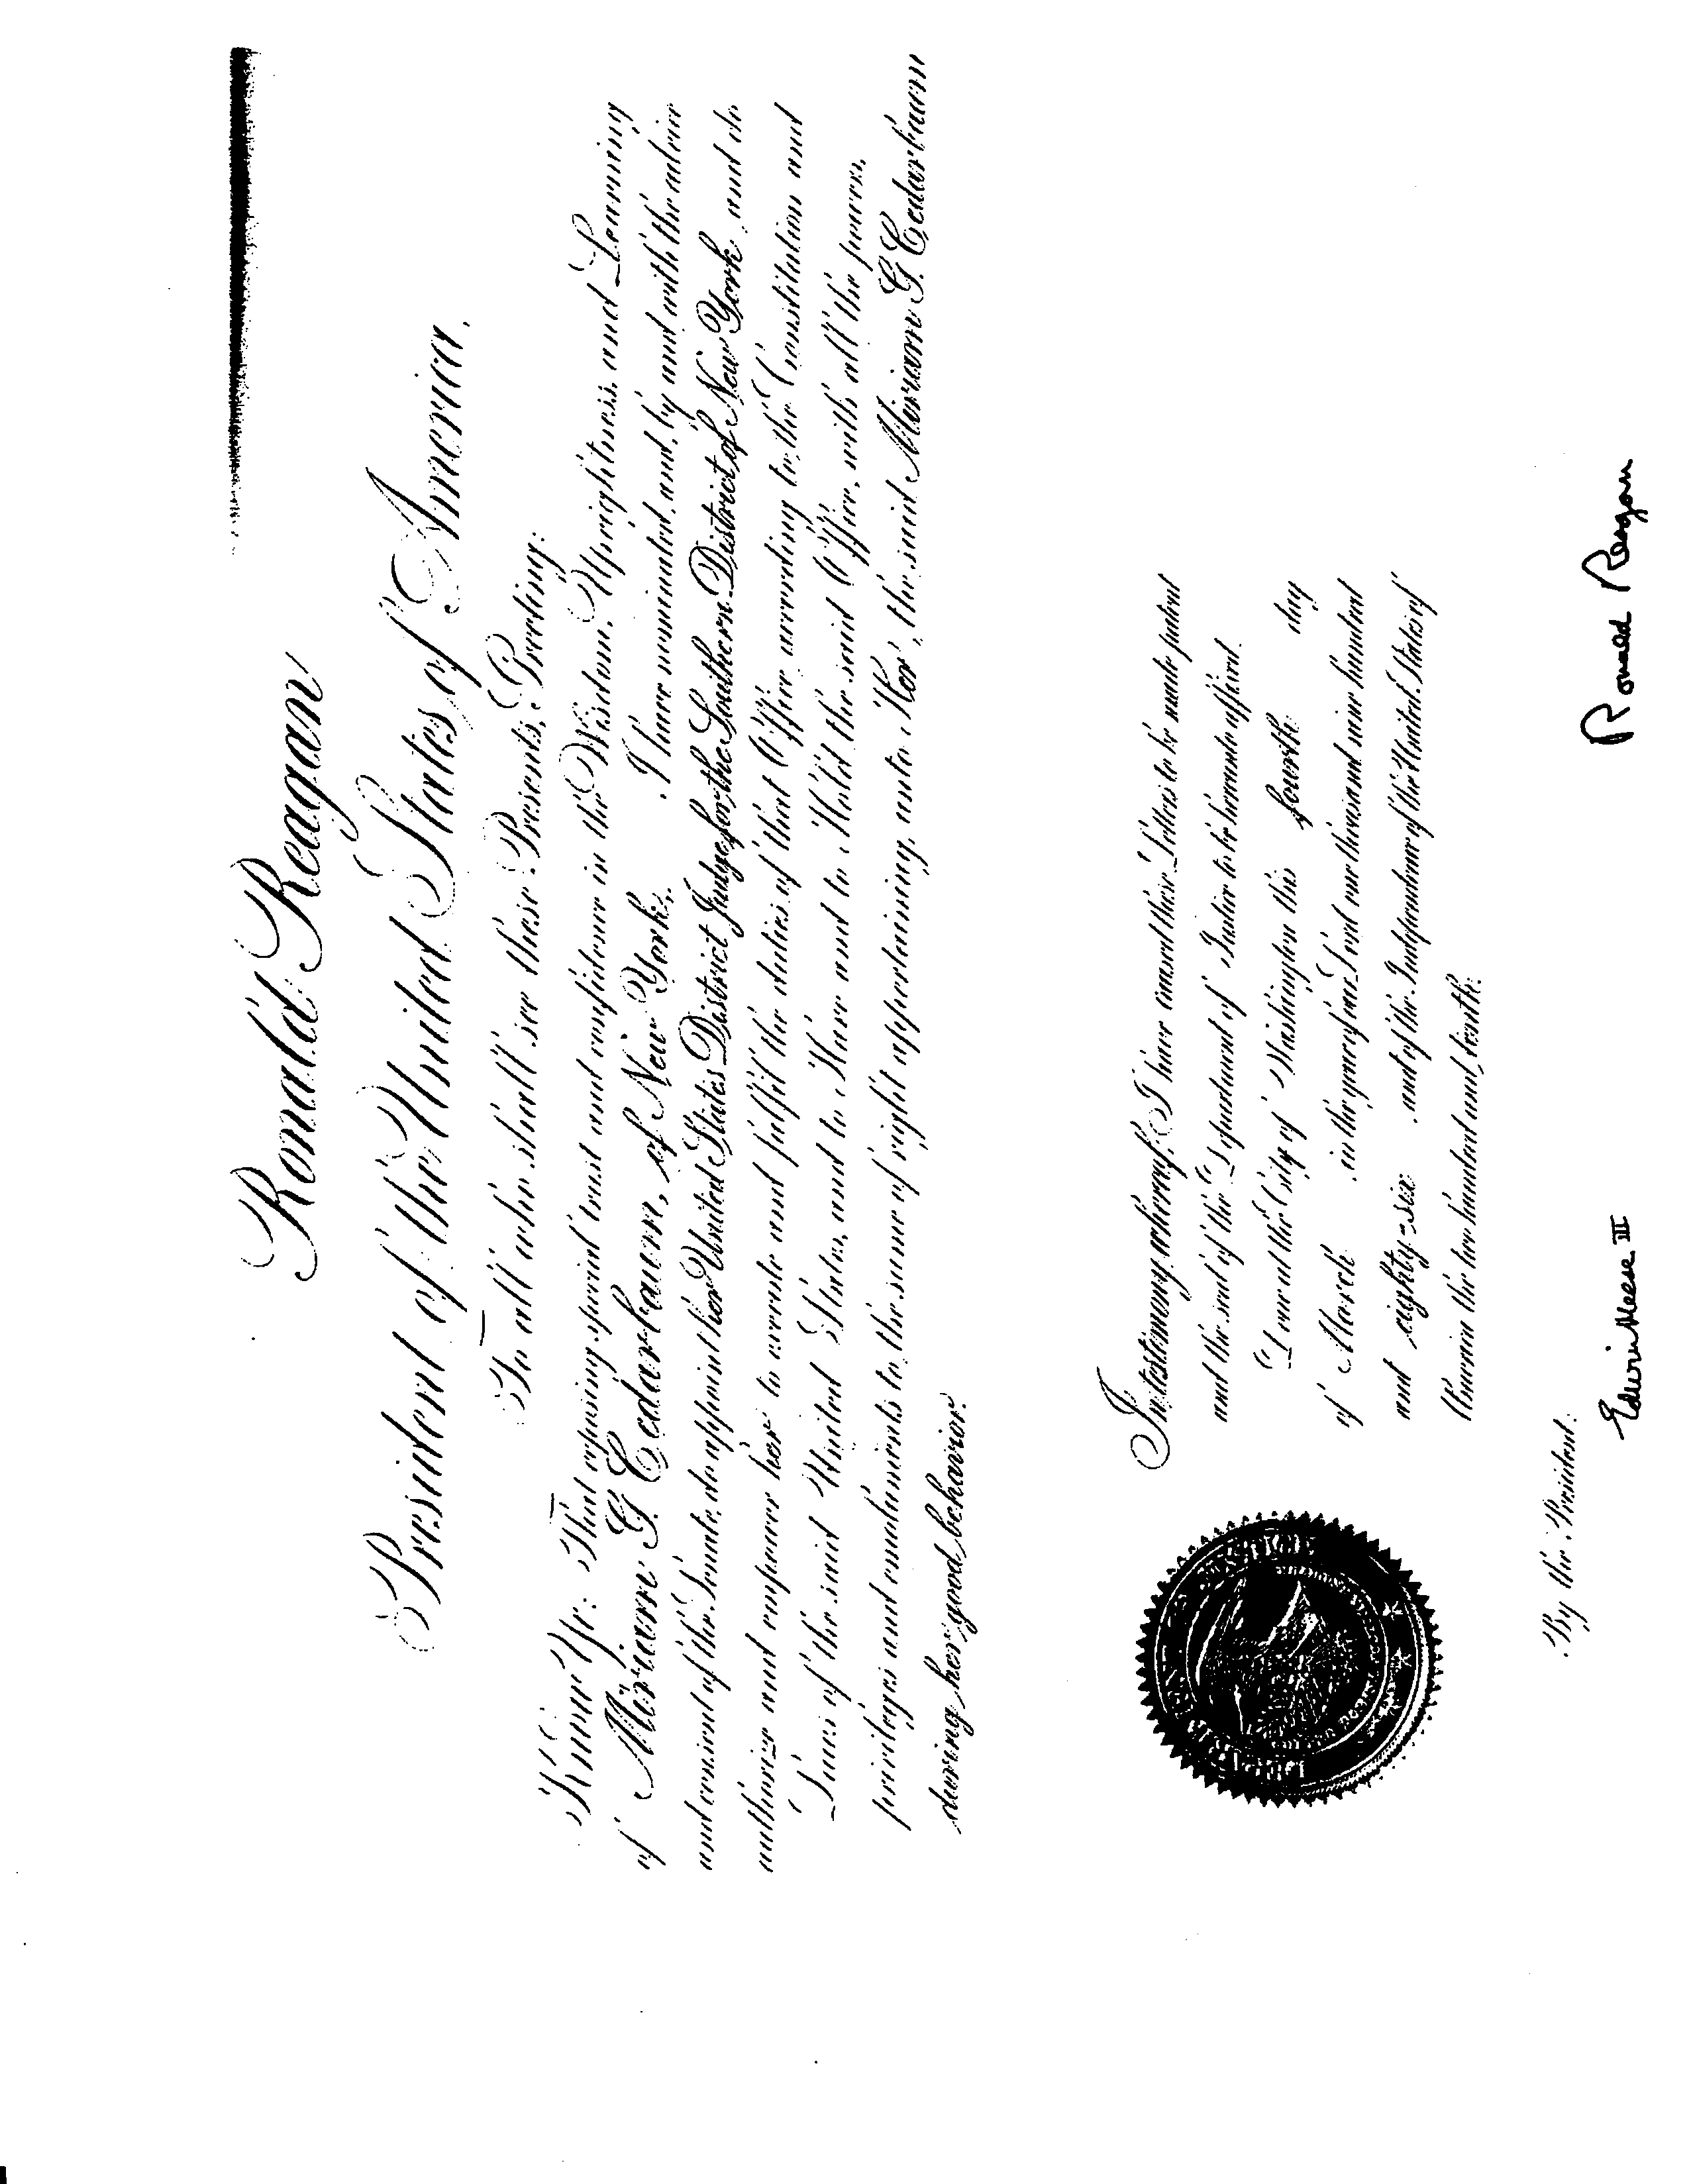 Ronald Reagan
President of the United States of America.
To all who shall see these Presents, Greeting:
Know Ye: That reposing special trust and confidence in the Wisdom, Uprightness, and Learning
of Miriam G. Cedarbaum, of New York, I have nominated, and, by and with the advice
and consent of the Senate, do appoint her United States District Judge for the Southern District of New York, and do
authorize and empower her to execute and fulfil the duties of that Office according to the Constitution and
Laws of the said United States, and to Have and to Hold the said Office, with all the powers,
privileges and emoluments to the same of right appertaining, unto Her, the said Miriam G. Cedarbaum
during her good behavior.
In testimony whereof, I have caused these Letters to be made patent
and the seal of the Department of Justice to be hereunto affixed.
Done at the City of Washington this fourth day
of March in the year of our Lord one thousand nine hundred
and eighty-six and of the Independence of the United States of
America the two hundred and tenth.
Ronald Reagan
By the President:
Edwin Meese III